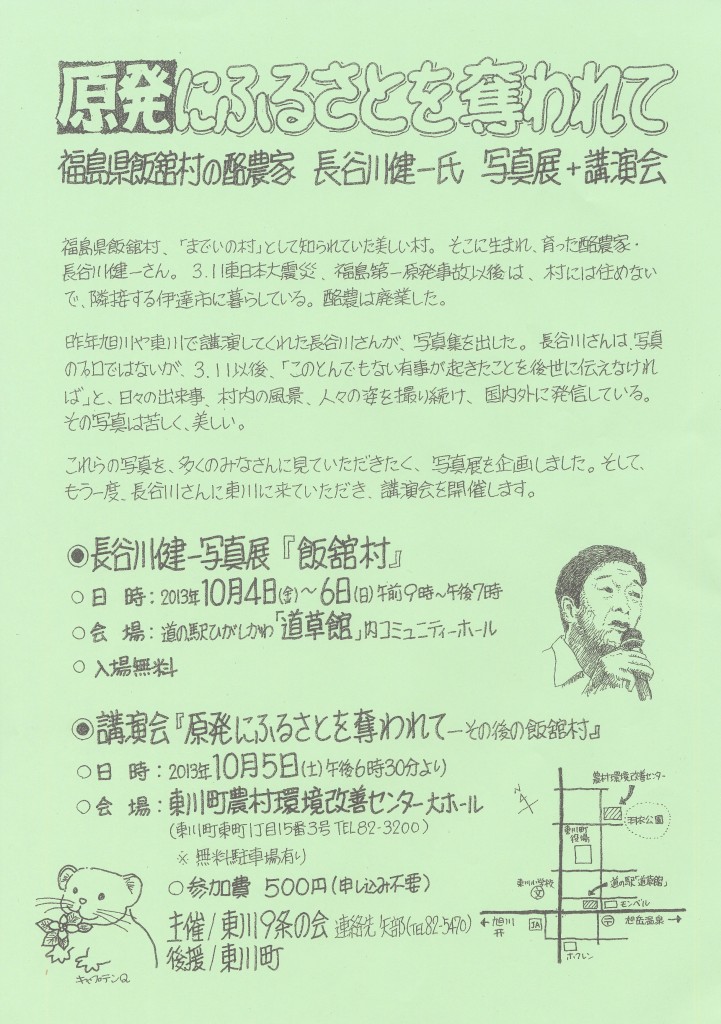 原発にふるさとを奪われて
福島県飯舘村の酪農家 長谷川健一氏 写真展+講演会
福島県飯舘村、「までいの村」として知られていた美しい村。そこに生まれ、育った酪農家・
長谷川健一さん。3.11東日本大震災、福島第一原発事故以後は、村には住めない
で、隣接する伊達市に暮らしている。酪農は廃業した。
昨年旭川や東川で講演してくれた長谷川さんが、写真集を出した。長谷川さんは、写真
のプロではないが、3.11以後、「このとんでもない有事が起きたことを後世に伝えなけれ
ば」と、日々の出来事、村内の風景、人々の姿を撮り続け、国内外に発信している。
その写真は苦しく、美しい。
これらの写真を、多くのみなさんに見ていただきたく、写真展を企画しました。そして、
もう一度、長谷川さんに東川に来ていただき、講演会を開催します。
◉長谷川健一写真展『飯舘村』
○日 時:2013年10月4日(金)〜6日(日)午前9時〜午後7時
○会 場:道の駅ひがしかわ「道草館」内コミュニティーホール
○入場無料
◉講演会『原発にふるさとを奪われて—その後の飯舘村』
○日 時:2013年10月5日(土)午後6時30分より
○会 場:東川町農村環境改善センター大ホール
(東川町東町1丁目15番3号 TEL82-3200)
※無料駐車場有り
○参加費 500円(申し込み不要)
主催/東川9条の会 連絡先 矢部(TEL82-5470)
後援/東川町
キャプテンQ
農村環境改善センター
羽衣公園
東川町
役場
東川小学校
文
道の駅「道草館」
モンベル
←旭川
JA
〒
旭岳温泉→
ホクレン